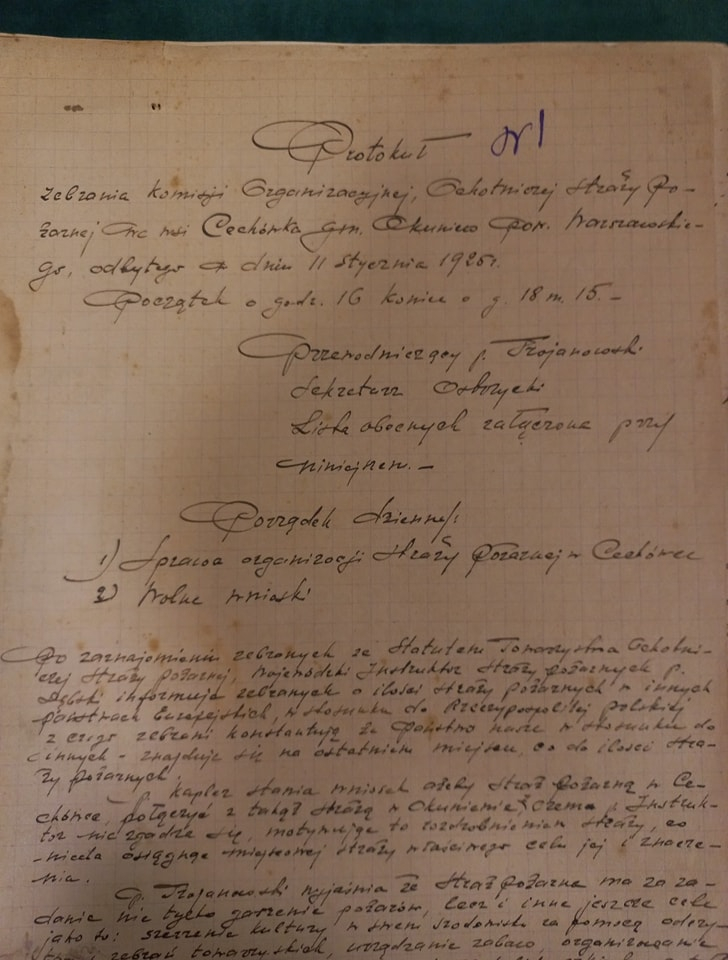 Protokuł № 1
zebrania Komisji Organizacyjnej, Ochotniczej Straży Po-
żarnej we wsi Cechówka gm. Okuniew pow. Warszawskie-
go, odbytego w dniu 11 stycznia 1925 r.
Początek o godz. 16 koniec o g. 18 m. 15. –
Przewodniczący p. Trojanowski
Sekretarz Ostrzycki
Lista obecnych załączona przy
niniejszem. –
Porządek dzienny:
1) Sprawa organizacji Straży Pożarnej w Cechówce
2) Wolne wnioski
Po zaznajomieniu zebranych ze Statutem Towarzystwa Ochotni-
czej Straży Pożarnej, Wojewódzki Instruktor Straży pożarnych p.
informuje zebranych o ilości Straży pożarnych w innych
państwach Europejskich, w stosunku do Rzeczypospolitej polskiej
z czego zebrani konstantują że Państwo nasze w stosunku do
innych – znajduje się na ostatniem miejscu, co do ilości Stra-
ży pożarnych.
kapler stawia wniosek ażeby Straż Pożarną w Ce-
chówce, połączyć z takąż Strażą w Okuniewie, czemu p. Instruk-
tor nie zgadza się, motywując to rozdrobnieniem Straży, co
niecla osiągnąć miejscowej straży właściwego celu jej i znacze-
nia.
p. Trojanowski wyjaśnia że Straż pożarna ma za za-
danie nie tylko gaszenie pożarów, lecz i inne jeszcze cele
jako to: szerzenie kultury w swem środowisku za pomocą odczy-
tów i zebrań towarzyskich, urządzanie zabaw, organizowanie